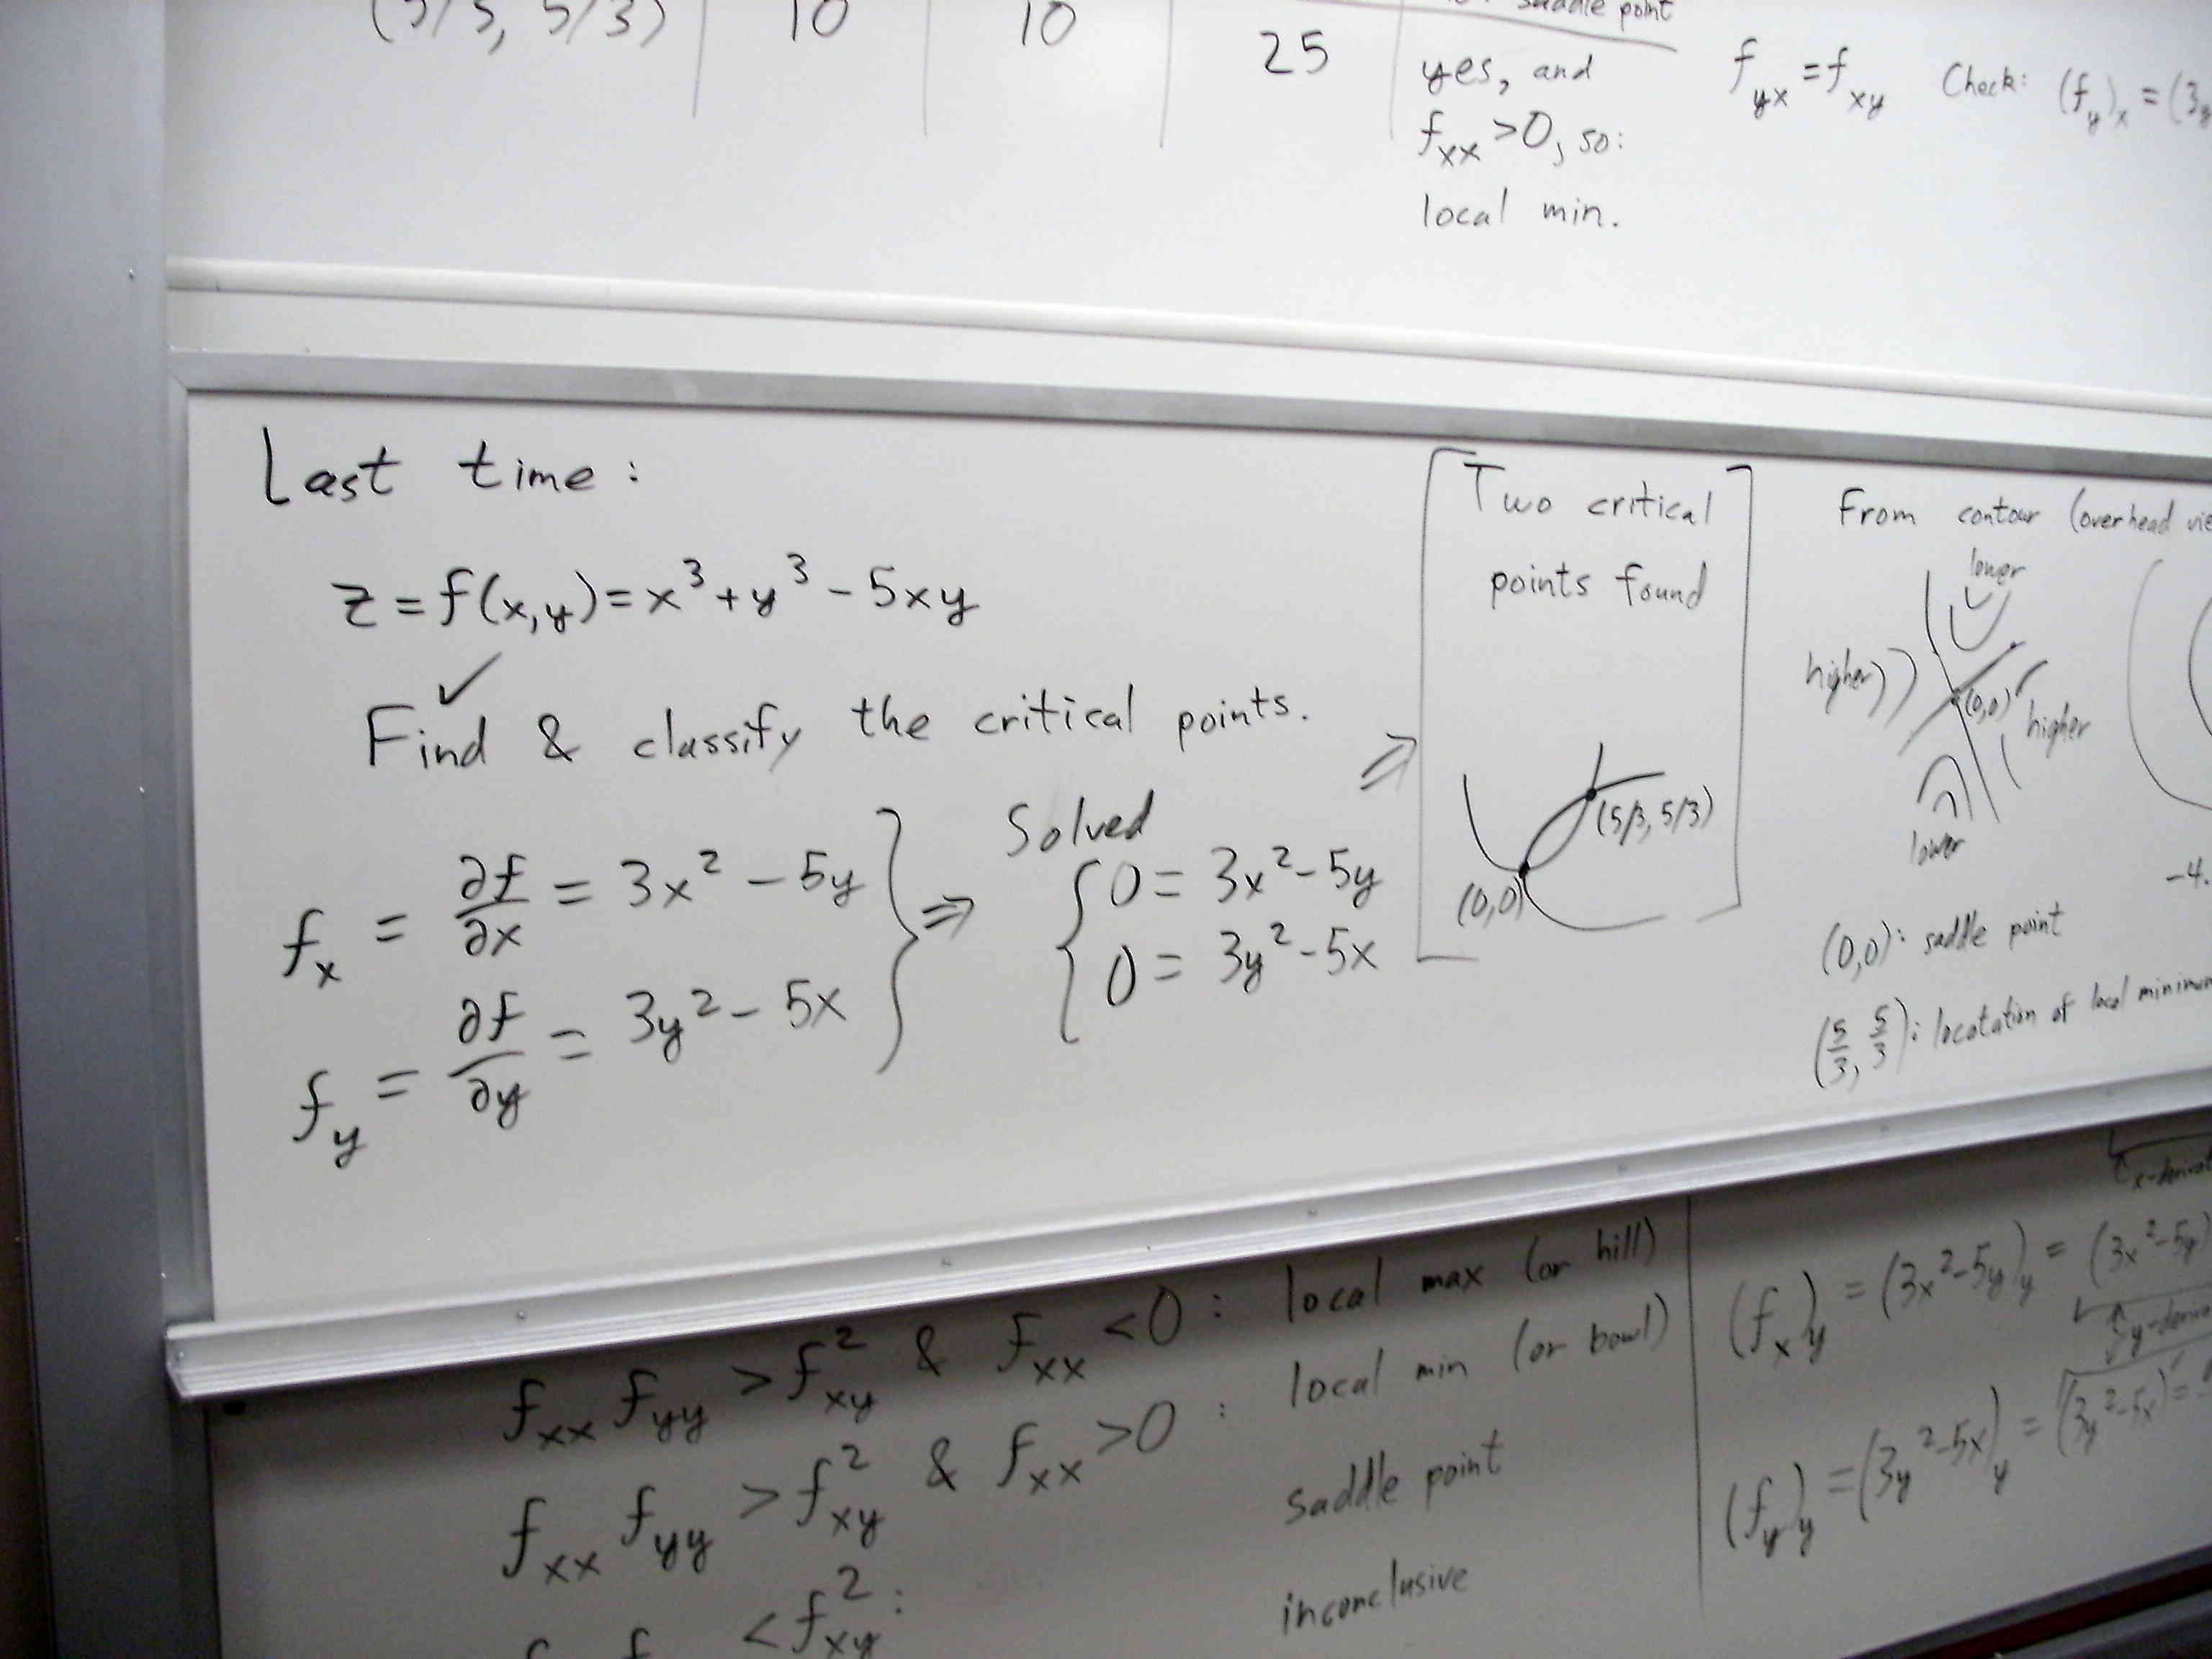 (5/3, 5/3) 10 10 25
saddle point
yes, and
f_xx >0, so:
local min.
f_yx = f_xy Check: (f_y)_x = (3y
Last time:
z = f(x,y) = x³ + y³ - 5xy
✓
Find & classify the critical points.
f_x = ∂f/∂x = 3x² - 5y
f_y = ∂f/∂y = 3y² - 5x
⇒
Solved
0 = 3x² - 5y
0 = 3y² - 5x
⇒
Two critical
points found
(5/3, 5/3)
(0,0)
From contour (overhead vie
lower
higher
(0,0)
higher
lower
-4.
(0,0): saddle point
(5/3, 5/3): locatation of local minimum
f_xx f_yy > f²_xy & f_xx <0 : local max (or hill)
f_xx f_yy > f²_xy & f_xx >0 : local min (or bowl)
< f²_xy: saddle point
inconclusive
x-derivat
(f_x)_y = (3x²-5y)_y = (3x²-5y)
y-deriva
(f_y)_y = (3y²-5x)_y = (3y²-5x) =